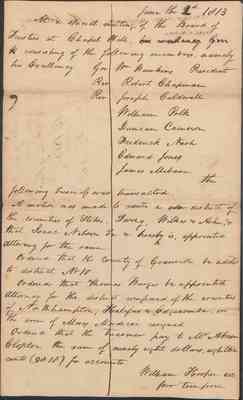 June the 2d 1813
At a meeting of the Board of
Trustees at Chapel Hill,
consisting of the following members, namely
his Excellency Gov Wm Hawkins President
Rev Robert Chapman
Rev Joseph Caldwell
William Polk
Duncan Cameron
Frederick Nash
Edward Jones
James Mebane
The
following business was transacted
A motion was made to create a district of
the counties of Stokes, Surry, Wilkes & Ashe, &
that Isaac Nelson be & hereby is, appointed
Attorney for the same
Ordered that the County of Granville be added
to district No 10
Ordered that Thomas Burges be appointed
Attorney for the district composed of the counties
of Northampton, Halifax & Edgecombe, in
the room of resigned
Ordered that the Treasurer pay to Mr Abner
Clopton the sum of ninety eight dollars eighteen
cents for accounts
William Hooper sec
pro tempore